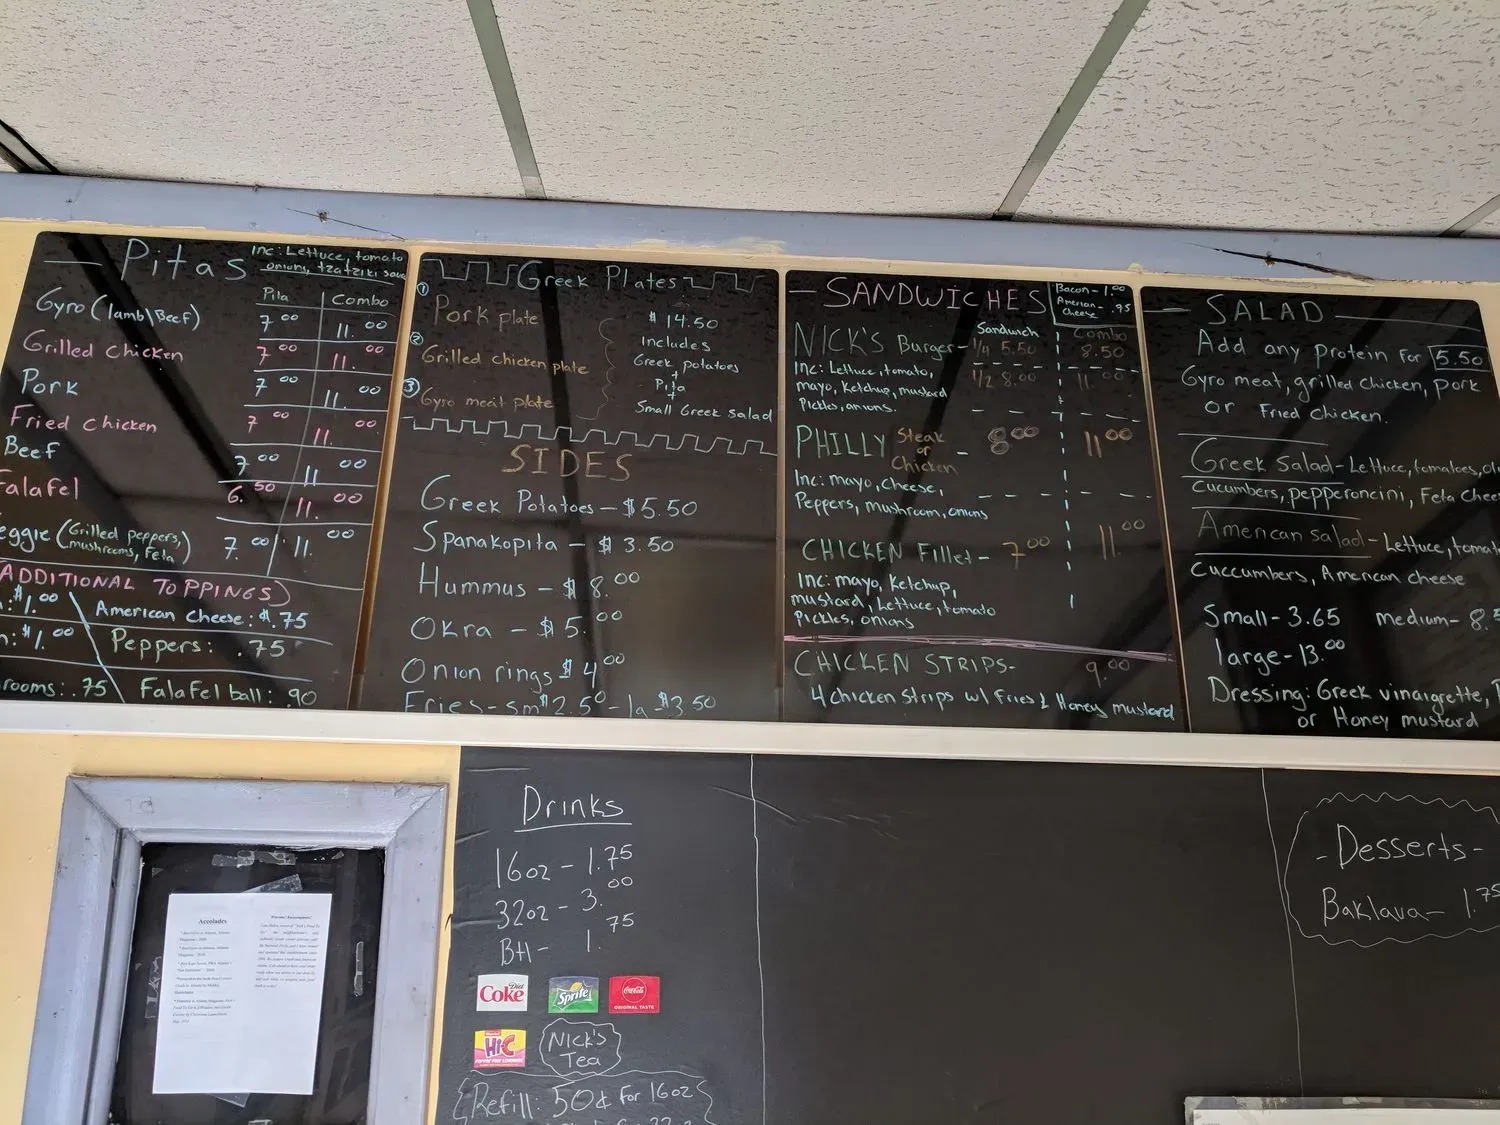 Pitas
Inc: Lettuce, tomato
onions, tzatziki
Pita Combo
Gyro (lamb\Beef) 7.00 11.00
Grilled Chicken 7.00 11.00
Pork 7.00 11.00
Fried Chicken 7.00 11.00
Beef 7.00 11.00
Falafel 6.50 11.00
eggie (Grilled peppers, mushrooms, Feta) 7.00 11.00
ADDITIONAL TOPPINGS)
: $1.00 American cheese: $.75
: $1.00 Peppers: .75
rooms: .75 Falafel ball: .90
Greek Plates
① Pork plate
② Grilled chicken plate
③ Gyro meat plate
$14.50
Includes
Greek potatoes
+
Pita
+
Small Greek Salad
SIDES
Greek Potatoes - $5.50
Spanakopita - $3.50
Hummus - $8.00
Okra - $5.00
Onion rings $4.00
Fries - sm $2.50 - la $3.50
- SANDWICHES
Bacon - 1.00
American Cheese - .95
Sandwich Combo
NICK'S Burger - 1/4 5.50 8.50
1/2 8.00 11.00
Inc: Lettuce, tomato,
mayo, Ketchup, mustard
Pickles, onions.
PHILLY Steak or Chicken - 8.00 11.00
Inc: mayo, cheese,
Peppers, mushroom, onions
CHICKEN Fillet - 7.00 11.00
Inc: mayo, Ketchup,
mustard, Lettuce, tomato
Pickles, onions
CHICKEN STRIPS- 9.00
4 chicken strips w/ Fries & Honey mustard
- SALAD -
Add any protein for 5.50
Gyro meat, grilled chicken, pork
or Fried Chicken.
Greek Salad - Lettuce, tomatoes,
Cucumbers, pepperoncini, Feta Chee
American salad - Lettuce, tomat
Cuccumbers, American cheese
Small - 3.65 medium - 8.
large - 13.00
Dressing: Greek vinaigrette,
or Honey mustard
Drinks
16oz - 1.75
32oz - 3.00
Btl - 1.75
Diet Coke
Sprite
Coca-Cola
ORIGINAL TASTE
Hi-C
NICK'S
Tea
Refill: 50¢ for 16oz
- Desserts -
Baklava - 1.75
Accolades